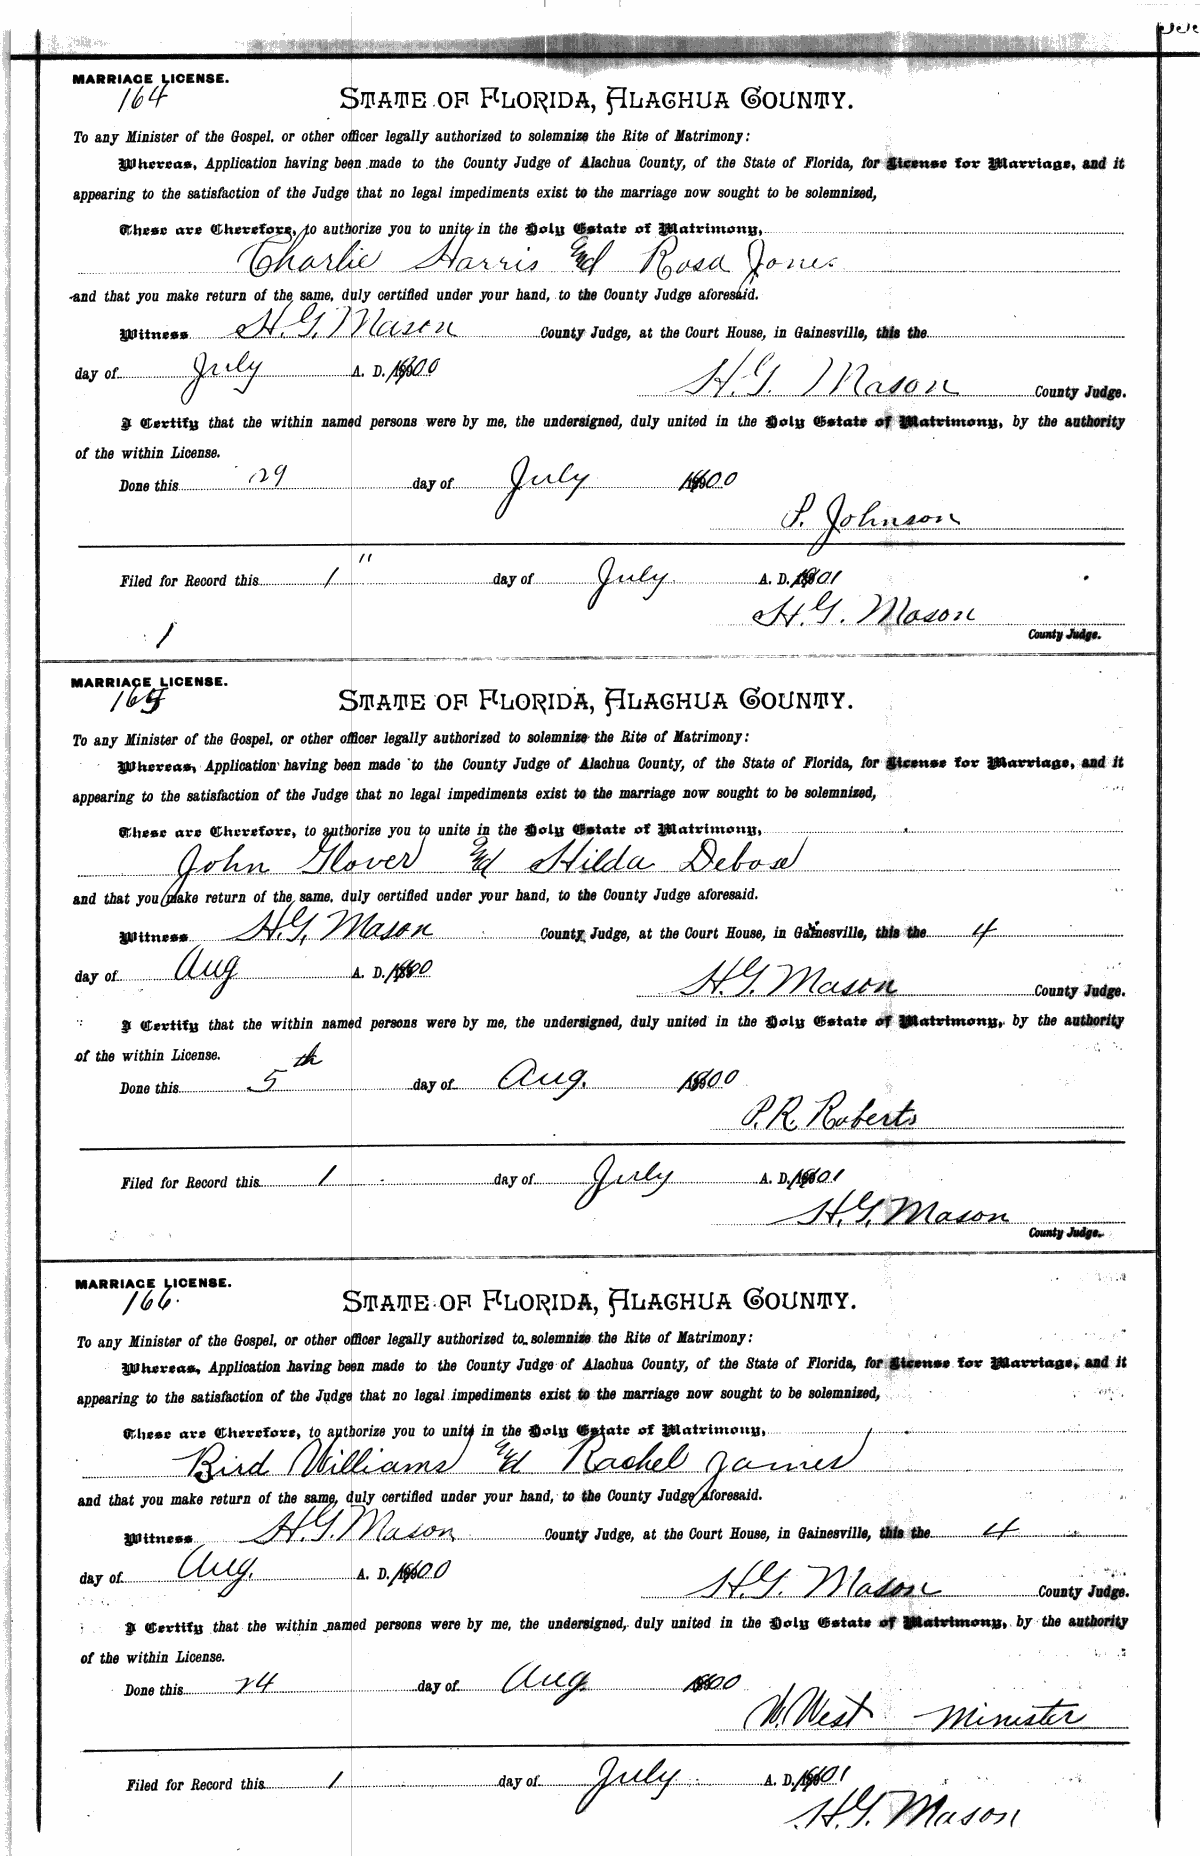 MARRIAGE LICENSE.
164
STATE OF FLORIDA, ALACHUA COUNTY.
To any Minister of the Gospel, or other officer legally authorized to solemnize the Rite of Matrimony:
Whereas, Application having been made to the County Judge of Alachua County, of the State of Florida, for License for Marriage, and it
appearing to the satisfaction of the Judge that no legal impediments exist to the marriage now sought to be solemnized,
These are Therefore, to authorize you to unite in the Holy Estate of Matrimony,
Charlie Harris and Rosa Jones
and that you make return of the same, duly certified under your hand, to the County Judge aforesaid.
Witness H.G. Mason County Judge, at the Court House, in Gainesville, this the
day of July A. D. 1900
H.G. Mason County Judge.
I Certify that the within named persons were by me, the undersigned, duly united in the Holy Estate of Matrimony, by the authority
of the within License.
Done this 29 day of July 1900
P. Johnson
Filed for Record this 1" day of July A. D. 1901
H.G. Mason
County Judge.
1
MARRIAGE LICENSE.
165
STATE OF FLORIDA, ALACHUA COUNTY.
To any Minister of the Gospel, or other officer legally authorized to solemnize the Rite of Matrimony:
Whereas, Application having been made to the County Judge of Alachua County, of the State of Florida, for License for Marriage, and it
appearing to the satisfaction of the Judge that no legal impediments exist to the marriage now sought to be solemnized,
These are Therefore, to authorize you to unite in the Holy Estate of Matrimony,
John Glover and Hilda Debose
and that you make return of the same, duly certified under your hand, to the County Judge aforesaid.
Witness H.G. Mason County Judge, at the Court House, in Gainesville, this the 4
day of Aug A. D. 1900
H.G. Mason County Judge.
I Certify that the within named persons were by me, the undersigned, duly united in the Holy Estate of Matrimony, by the authority
of the within License.
Done this 5th day of Aug. 1900
P.R. Roberts
Filed for Record this 1 day of July A. D. 1901
H.G. Mason
County Judge.
MARRIAGE LICENSE.
166.
STATE OF FLORIDA, ALACHUA COUNTY.
To any Minister of the Gospel, or other officer legally authorized to solemnize the Rite of Matrimony:
Whereas, Application having been made to the County Judge of Alachua County, of the State of Florida, for License for Marriage, and it
appearing to the satisfaction of the Judge that no legal impediments exist to the marriage now sought to be solemnized,
These are Therefore, to authorize you to unite in the Holy Estate of Matrimony,
Bird Williams and Rachel James
and that you make return of the same, duly certified under your hand, to the County Judge aforesaid.
Witness H.G. Mason County Judge, at the Court House, in Gainesville, this the 4
day of Aug. A. D. 1900
H.G. Mason County Judge.
I Certify that the within named persons were by me, the undersigned, duly united in the Holy Estate of Matrimony, by the authority
of the within License.
Done this 24 day of Aug. 1900
W. West Minister
Filed for Record this 1 day of July A. D. 1901
H.G. Mason